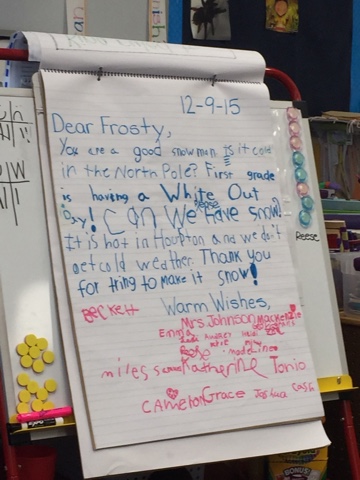 12-9-15
Dear Frosty,
You are a good snowman is it cold
in the North Pole? First grade
is having a White Out
Day! Can We please have snow?
It is hot in Houston and we don't
get cold weather. Thank you
for tring to make it snow!
Warm Wishes,
Beckett
Mrs. Johnson Mackenzie
Emma
Madeline
miles Katherine Tonio
Cameron Grace Joshua
Reese
BONUS